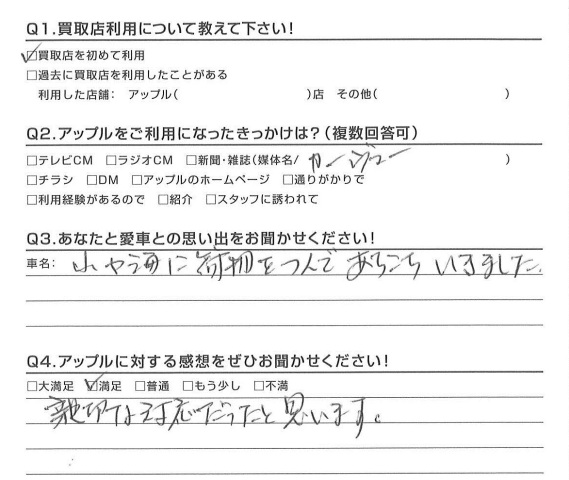 Q1.買取店利用について教えて下さい!
☑買取店を初めて利用
□過去に買取店を利用したことがある
利用した店舗: アップル( )店 その他( )
Q2.アップルをご利用になったきっかけは?(複数回答可)
□テレビCM □ラジオCM □新聞・雑誌(媒体名/ カージュー )
□チラシ □DM □アップルのホームページ □通りがかりで
□利用経験があるので □紹介 □スタッフに誘われて
Q3.あなたと愛車との思い出をお聞かせください!
車名: 山や海に荷物をつんであちこちいきました。
Q4.アップルに対する感想をぜひお聞かせください!
□大満足 ☑満足 □普通 □もう少し □不満
親切な対応だったと思います。